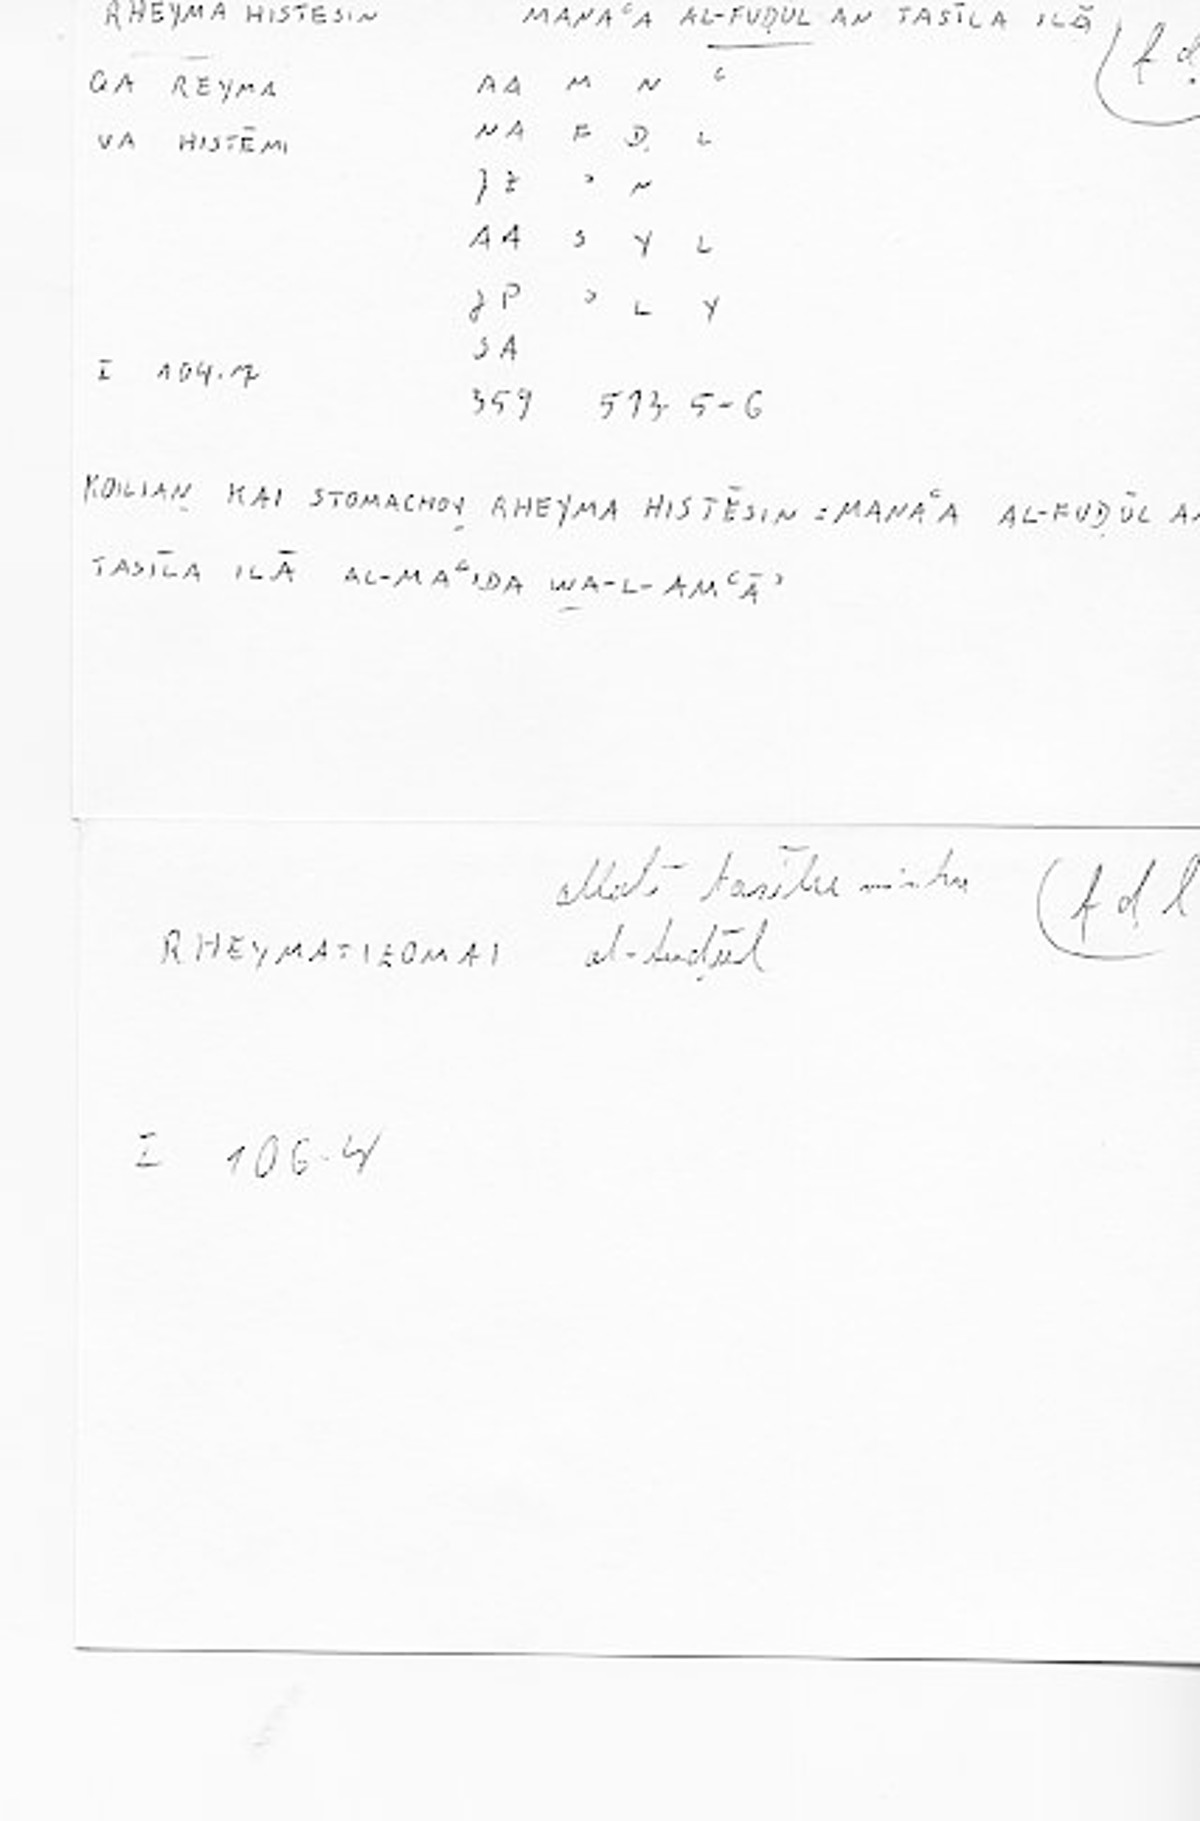 RHEYMA HISTESIN MANAʿA AL-FUḌUL AN TASĪLA ILĀ (f ḍ
QA REYMA AA M N ʿ
VA HISTĒMI NA F Ḍ L
JZ ʾ N
AA S Y L
JP ʾ L Y
SA
I 104.7
359 513 5-6
KOILIAN KAI STOMACHOY RHEYMA HISTĒSIN = MANAʿA AL-FUḌŪL AN
TASĪLA ILĀ AL-MAʿIDA WA-L-AMʿĀʾ
allatī tasīlu minhu (f ḍ l
RHEYMATIZOMAI al-fuḍūl
I 106.4